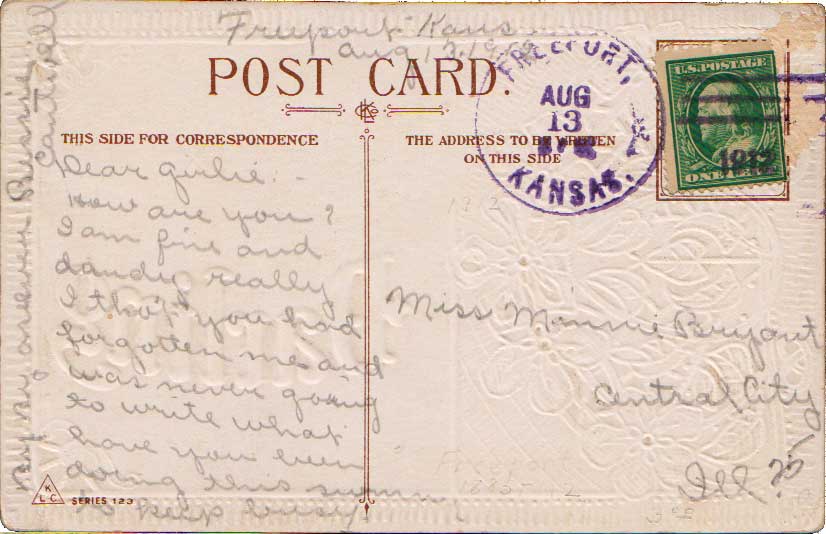 Freeport Kans
Aug 13, 19
POST CARD.
THIS SIDE FOR CORRESPONDENCE
THE ADDRESS TO BE WRITTEN
ON THIS SIDE
FREEPORT,
AUG
13
KANSAS.
U.S. POSTAGE
1912
1912
Dear girlie:-
How are you?
I am fine and
dandy really
I tho't you had
forgotten me and
was never going
to write what
have you been
doing this summ
to keep busy.
Miss Minnie Bryant
Central City
Ill
K
L C
SERIES 123
Freeport